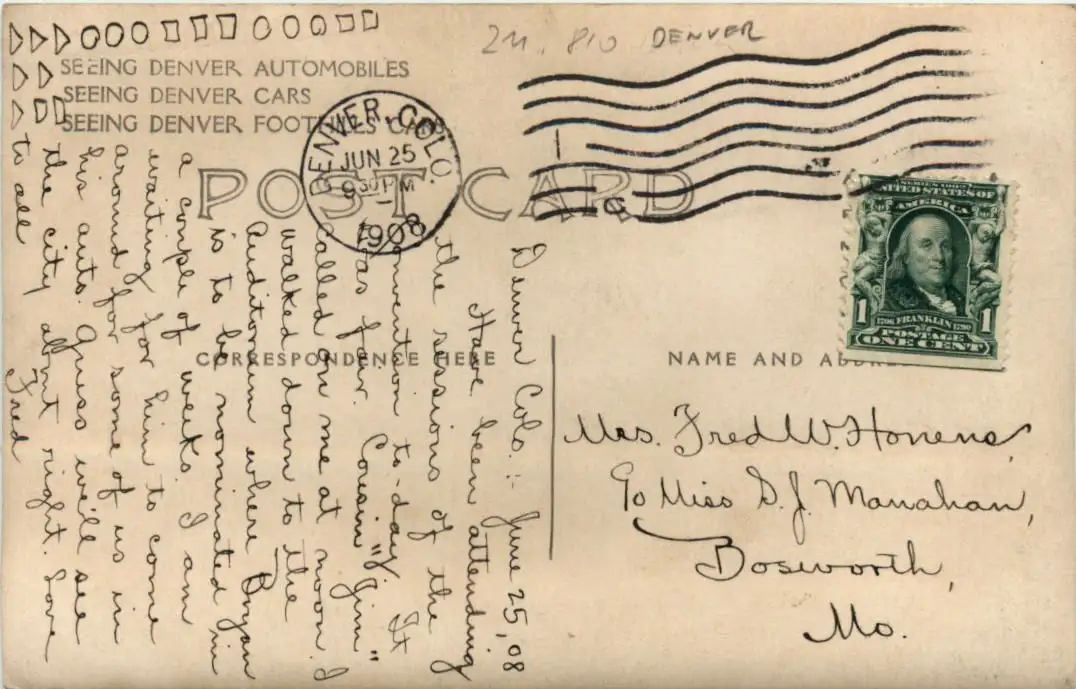 2M. 810 DENVER
SEEING DENVER AUTOMOBILES
SEEING DENVER CARS
SEEING DENVER FOOTHILLS CARS
DENVER, COLO.
JUN 25
9 30 PM
1908
POST CARD
SERIES 1902
UNITED STATES OF
AMERICA
1 1
1706 FRANKLIN 1790
POSTAGE
ONE CENT
CORRESPONDENCE HERE
NAME AND ADDRE
Denver Colo. :- June 25, 08
Have been attending
the sessions of the
convention to-day. It
was fair. Cousin "Jim"
called on me at noon. I
walked down to the
Auditorium where Bryan
is to be nominated in
a couple of weeks. I am
waiting for him to come
around for some of us in
his auto. Guess we'll see
the city about right. Love
to all Fred
Mrs. Fred W. Honens,
c/o Miss S. J. Manahan,
Bosworth,
Mo.